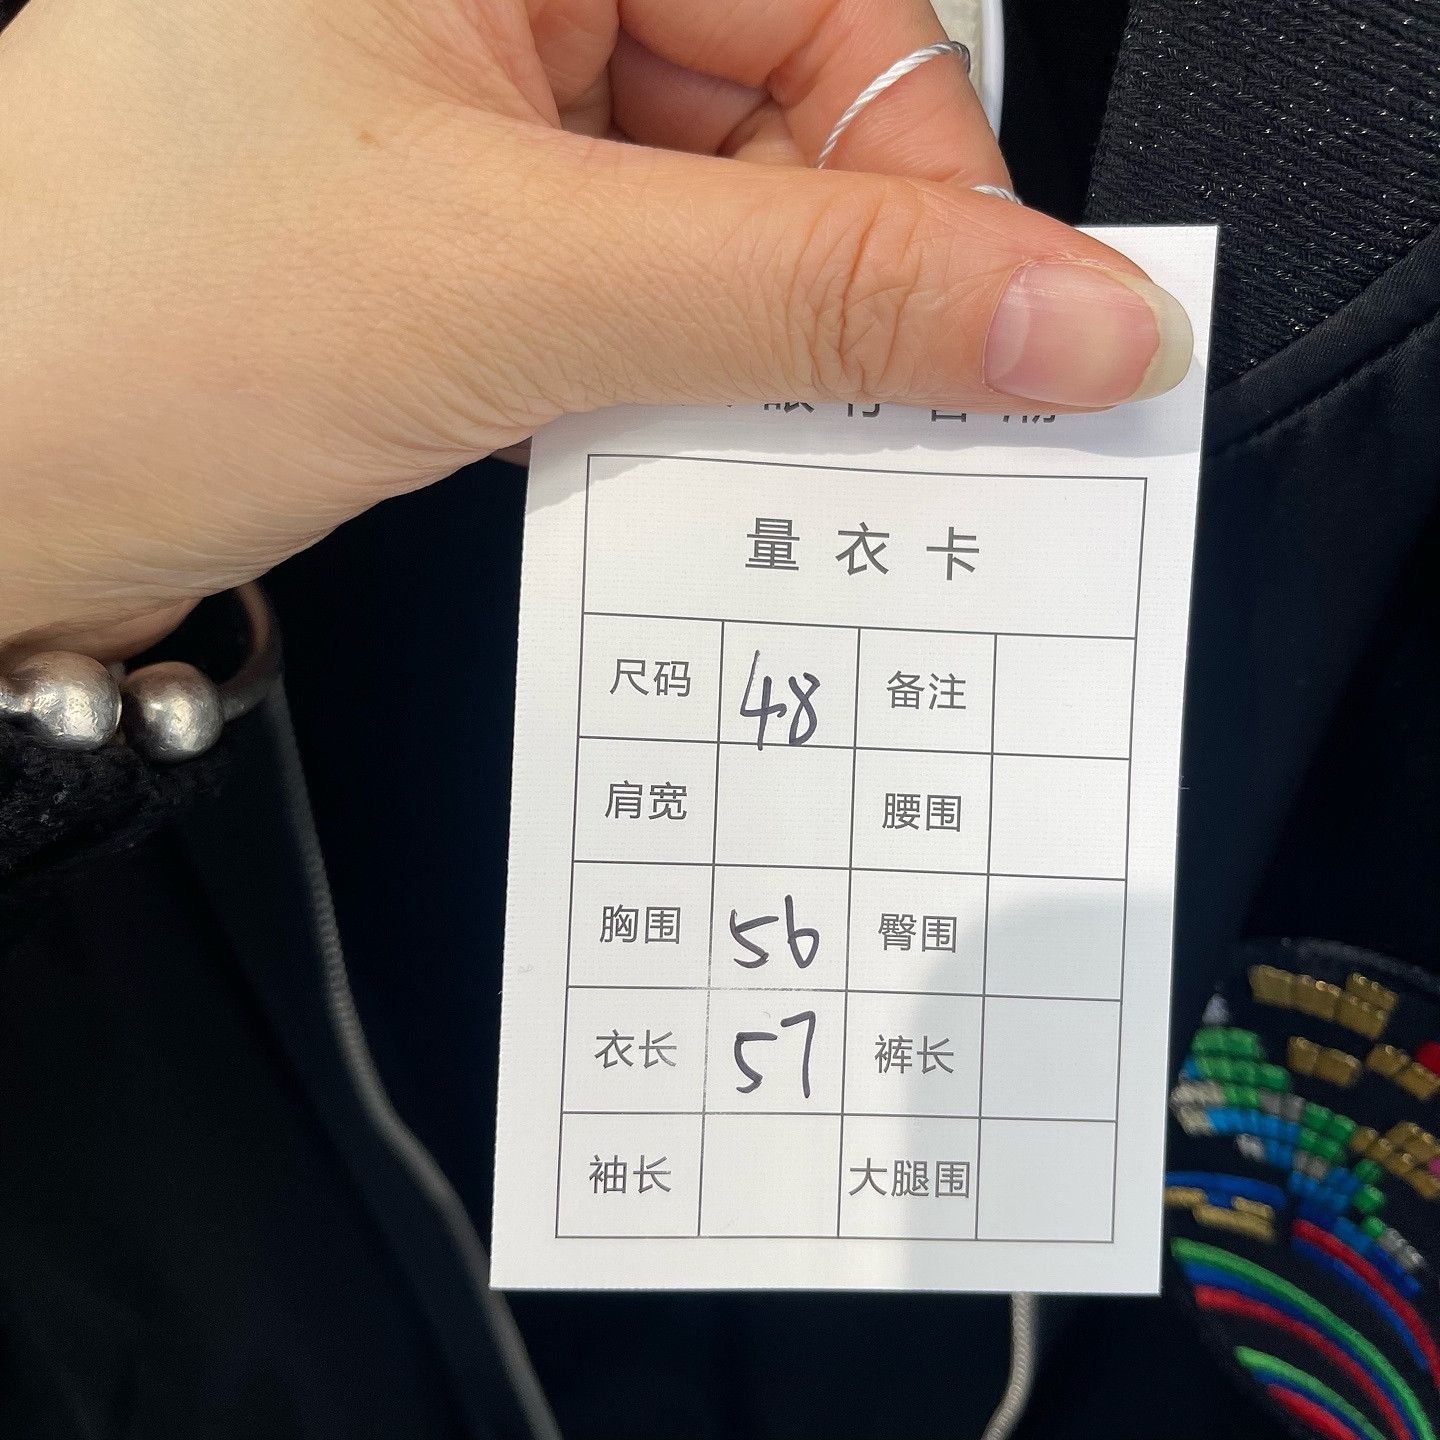 量衣卡
尺码 48 备注
肩宽 腰围
胸围 56 臀围
衣长 57 裤长
袖长 大腿围